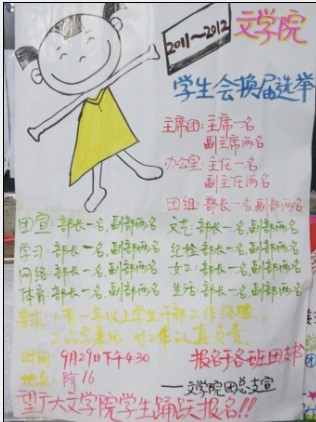 2011～2012
文学院
学生会换届选举
主席团：主席一名
副主席两名
办公室：主任一名
副主任两名
团组：部长一名，副部两名
团宣：部长一名，副部两名
文艺：部长一名，副部两名
学习：部长一名，副部两名
纪检：部长一名，副部两名
网络：部长一名，副部两名
女工：部长一名，副部两名
体育：部长一名，副部两名
生活：部长一名，副部两名
要求：1.有一年以上学生干部工作经验。
2.品学兼优，对工作认真负责。
时间：9月29日下午4:30
报名于各班团支书
地点：阶16
——文学院团总支宣
望广大文学院学生踊跃报名!!